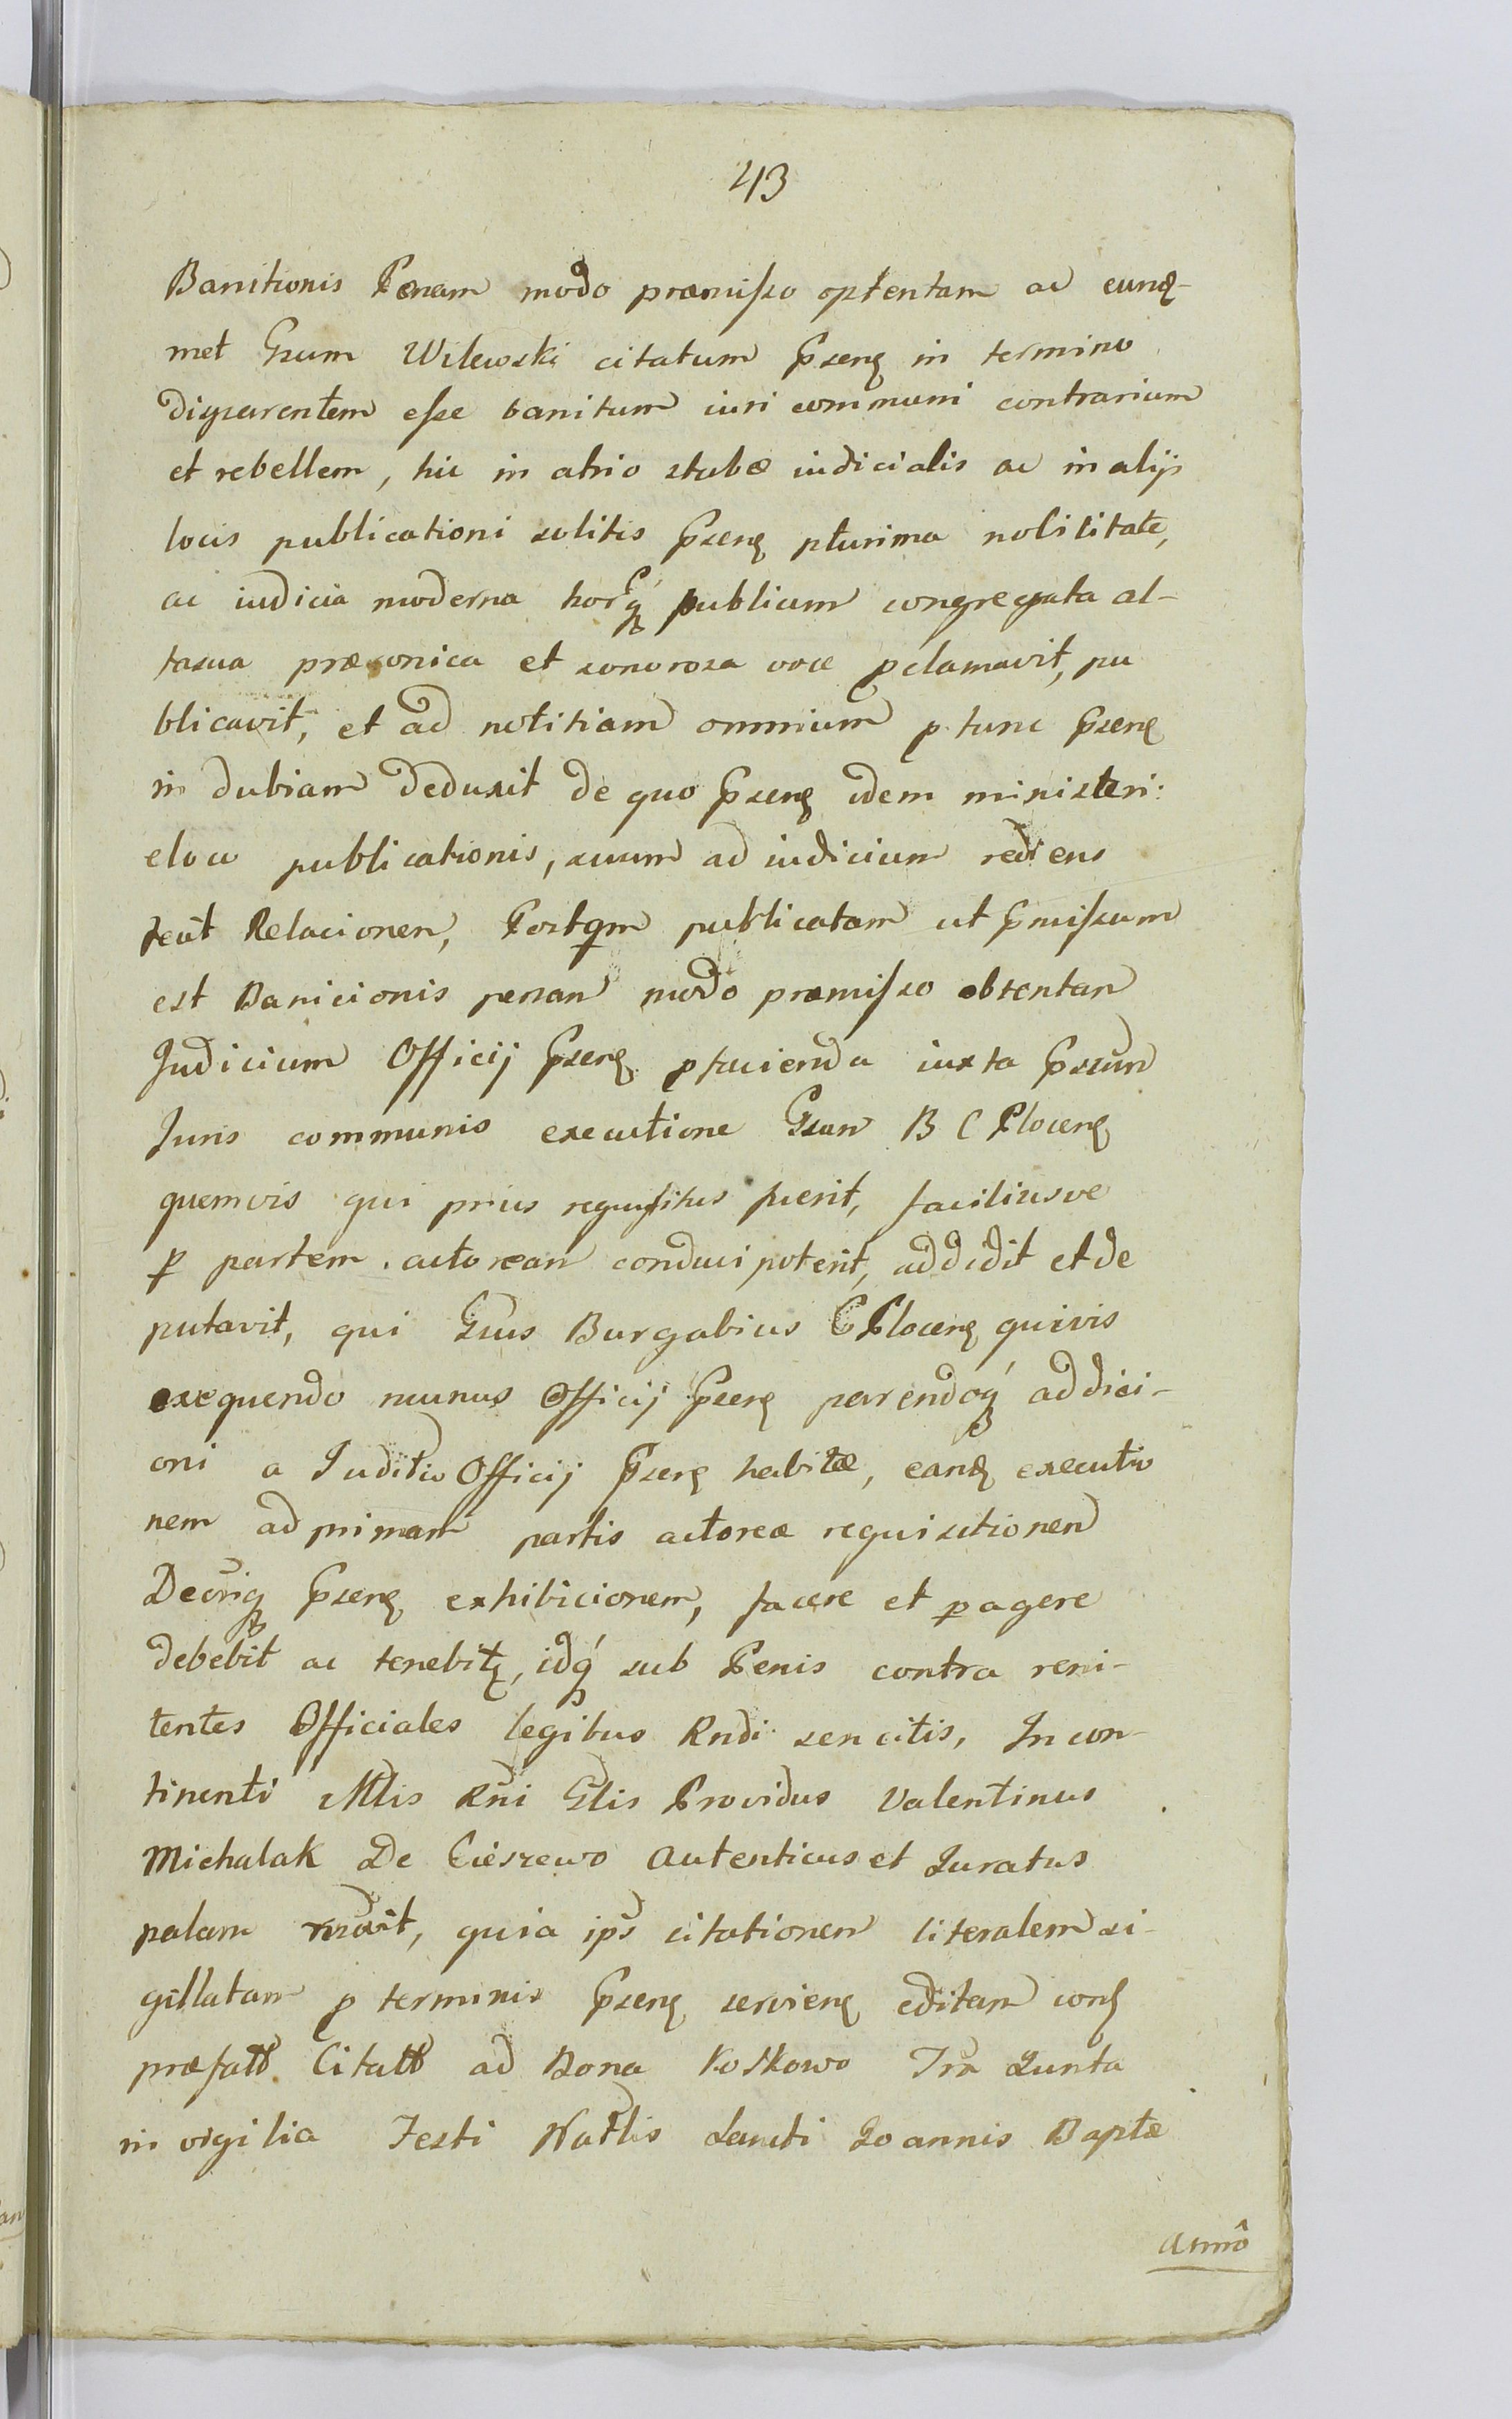 43
Banitionis Pœnam modo præmisso optentam ac eund-
met Gsum Wilewski citatum Pseng in termino
disparentem esse banitum iuri communi contrarium
et rebellem, hic in atrio stubæ iudicialis ac in alijs
locis publicationi solitis Pseng plurima nobilitate,
ac iudicia moderna horq publicum congregata al-
ta sua præconica et sonorosa voce pclamavit, pu
blicavit, et ad notitiam omnium p tunc Pseng
in dubiam deduxit de quo Pseng idem ministeri:
eloco publicationis, suum ad iudicium rediens
fecit Relacionem, Postqm publicatam ut Pmissum
est Banicionis penam modo præmisso obtentam
Judicium Officij Pseng pfacienda iuxta Pscum
Juris communis executione Gsum B C Ploceng
quemvis qui prius requisitus fuerit, faciliusve
p partem actoream conduci poterit, addidit et de
putavit, qui Gsus Burgabius C Ploceng quivis
exequendo munus Officij Pseng parendoq addici-
oni a Juditio Officij Pseng habitæ, eand executio
nem ad primam partis actoreæ requisitionem
Decriq Pseng exhibicionem, facere et pagere
debebit ac tenebitz, idq sub Penis contra reni-
tentes Officiales legibus Rndi sencitis, In con-
tinenti Mlis Rni Glis Providus Valentinus
Michalak De Cieszewo Autenticus et Juratus
palam rnavit, quia ips citationem literalem si-
gillatam p terminis Pseng servieng editam cong
præfatt Citatt ad Bona Koskowo Tra Junta
in vigilia Festi Natlis Sancti Joannis Baptæ
Anno